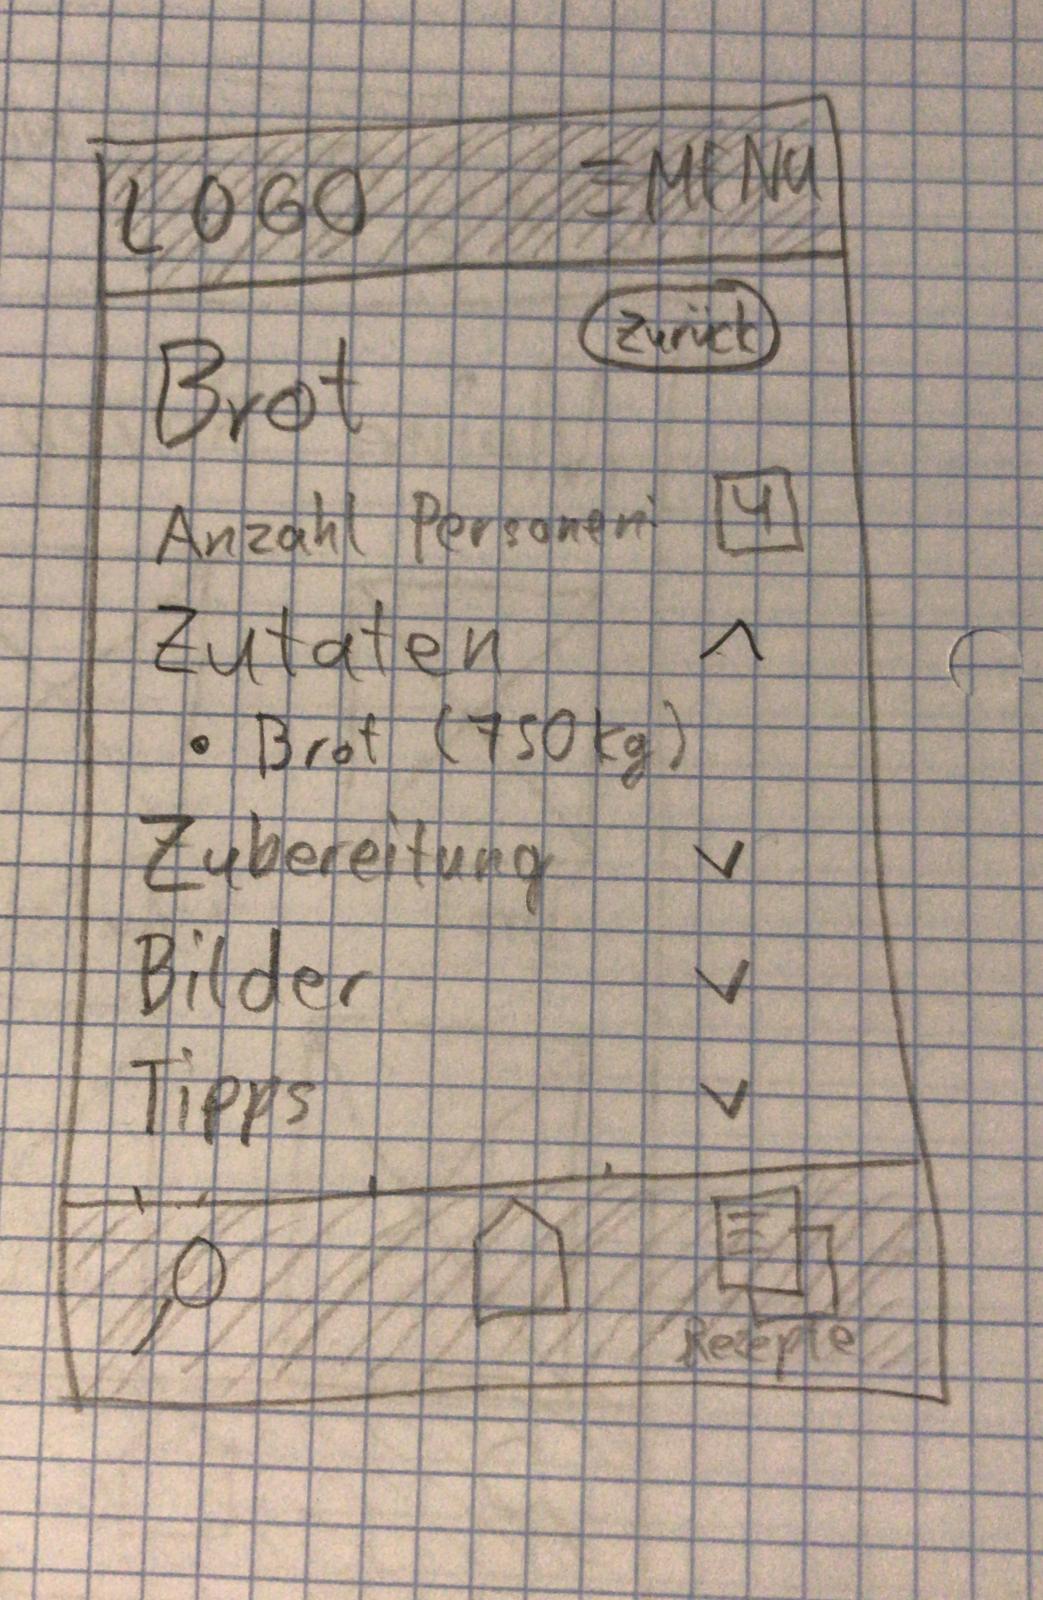 LOGO MENU
Zurück
Brot
Anzahl Personen 4
Zutaten
• Brot (750kg)
Zubereitung
Bilder
Tipps
Rezepte